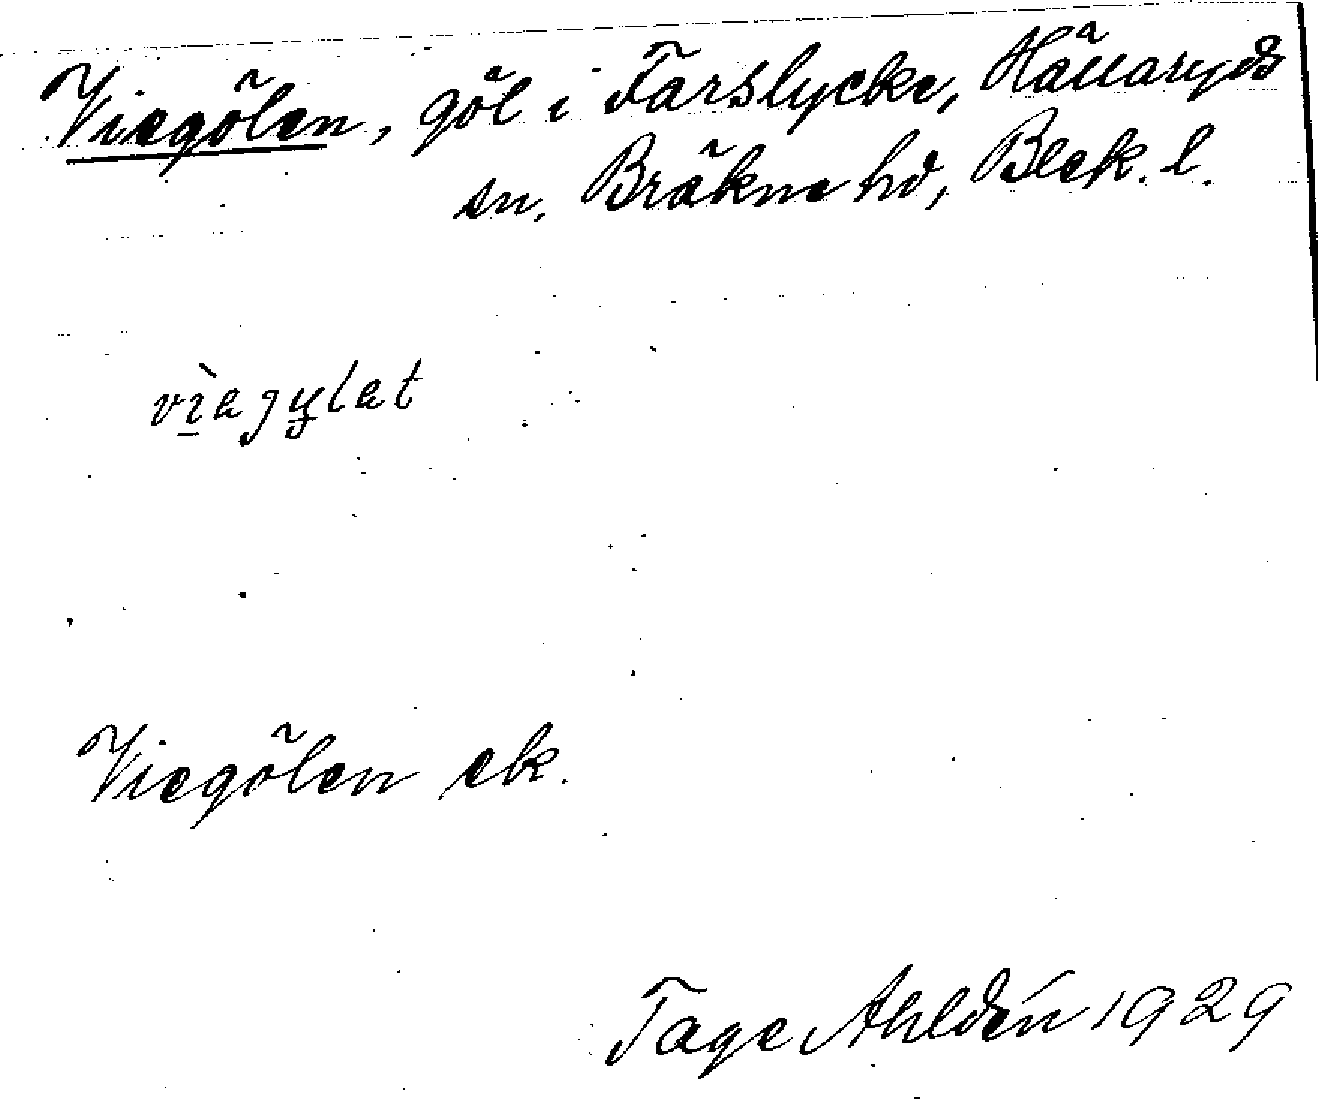 Viegölen, göl i Farslycke, Hällaryds
sn, Bräkne hd, Blek. l.
vìagylat
Viegölen ek.
Tage Ahldén 1929